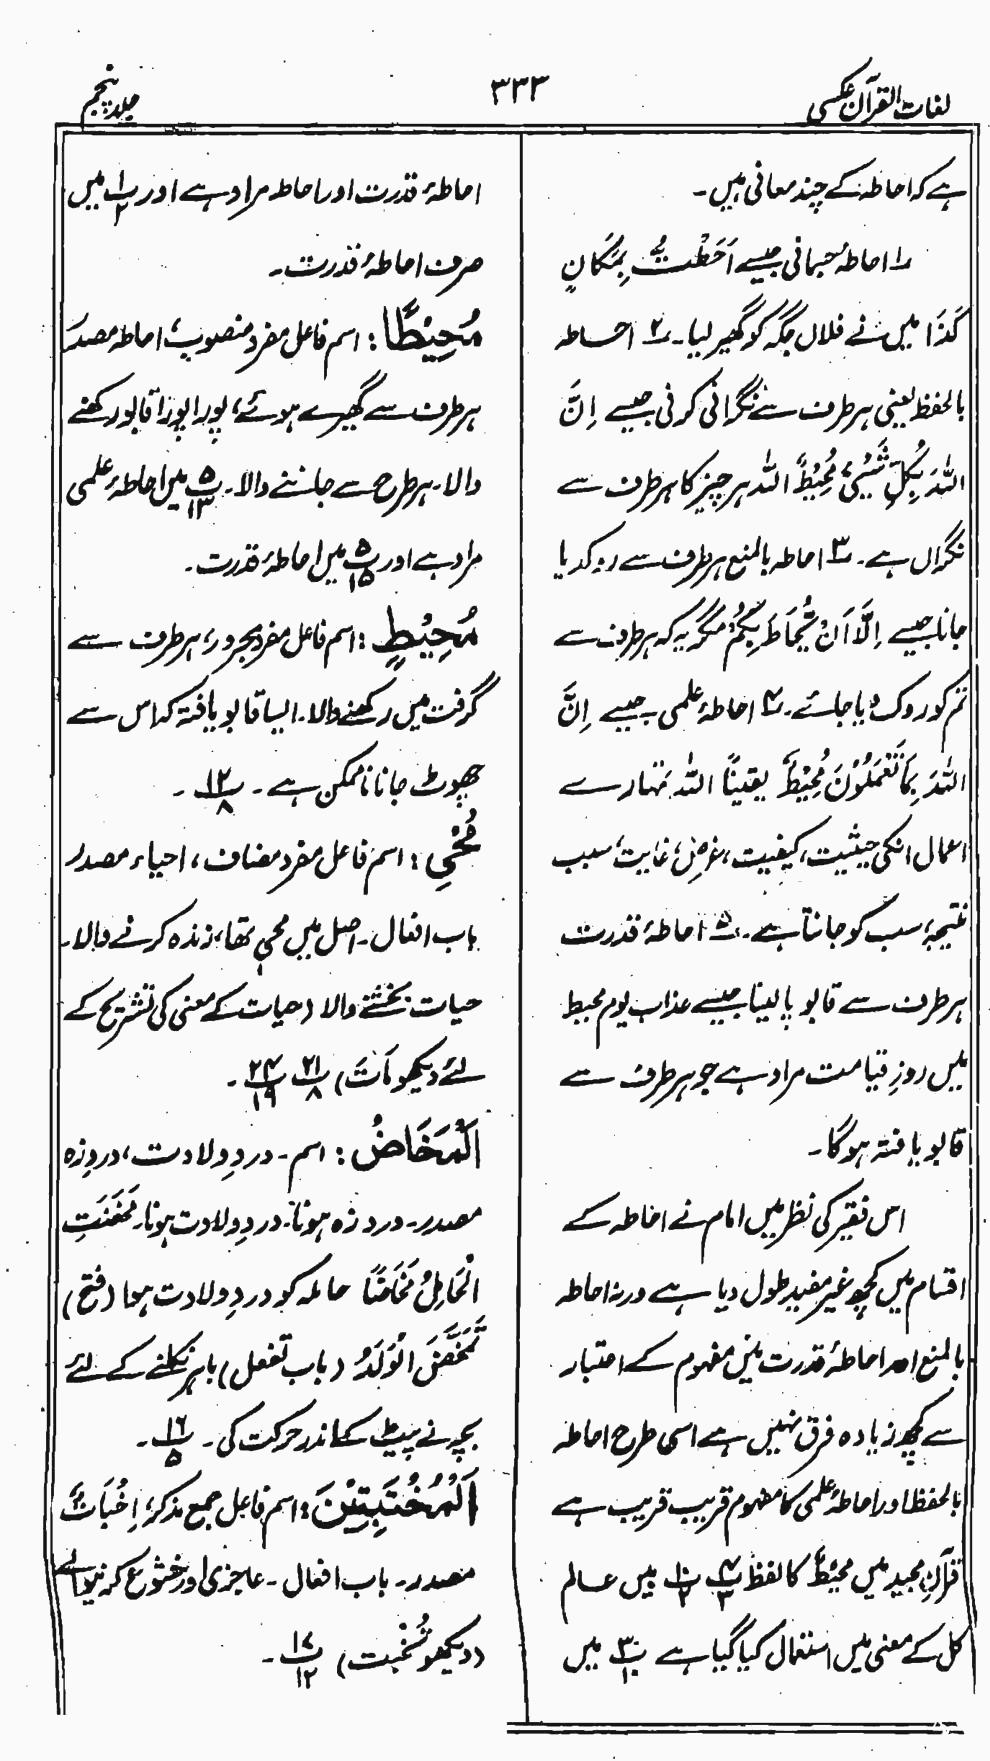 لغات القرآن عکسی
۳۳۳
جلد پنجم
ہے کہ احاطہ کے چند معانی ہیں۔
۱؎ احاطۂ جسمانی جیسے اَحَطْتُ بِمَکَانٍ
کَذَا میں نے فلاں جگہ کو گھیر لیا۔ ۲؎ احاطہ
بالحفظ یعنی ہر طرف سے نگرانی کرنی جیسے اِنَّ
اللہَ بِکُلِّ شَیْءٍ مُّحِیْطٌ اللہ ہر چیز کا ہر طرف سے
نگراں ہے۔ ۳؎ احاطہ بالمنع ہر طرف سے روک دیا
جانا جیسے اِلَّا اَنْ یُّحَاطَ بِکُمْ مگر یہ کہ ہر طرف سے
تم کو روک دیا جائے۔ ۴؎ احاطۂ علمی جیسے اِنَّ
اللہَ بِمَا تَعْمَلُوْنَ مُحِیْطٌ یقیناً اللہ تمہارے
اعمال انکی حیثیت، کیفیت، غرض، غایت، سبب
نتیجہ، سب کو جانتا ہے۔ ۵؎ احاطۂ قدرت
ہر طرف سے قابو پا لینا جیسے عذاب یوم محیط
میں روزِ قیامت مراد ہے جو ہر طرف سے
قابو یافتہ ہوگا۔
اس فقیر کی نظر میں امام نے احاطہ کے
اقسام میں کچھ غیر مفید طول دیا ہے ورنہ احاطہ
بالمنع اور احاطۂ قدرت میں مفہوم کے اعتبار
سے کچھ زیادہ فرق نہیں ہے اسی طرح احاطہ
بالحفظ اور احاطۂ علمی کا مفہوم قریب قریب ہے
قرآنِ مجید میں مُحِیْطٌ کا لفظ پ۴/۳ میں عالم
کل کے معنی میں استعمال کیا گیا ہے پ۳۰/۱۰ میں
احاطۂ قدرت اور احاطہ مراد ہے اور پ۱/۲ میں
صرف احاطۂ قدرت۔
مُحِیْطًا: اسم فاعل مفرد منصوب، احاطہ مصدر
ہر طرف سے گھیرے ہوئے، پورا پورا قابو رکھنے
والا۔ ہر طرح سے جاننے والا۔ پ۵/۱۳ میں احاطۂ علمی
مراد ہے اور پ۵/۱۵ میں احاطۂ قدرت۔
مُحِیْطٍ: اسم فاعل مفرد مجرور، ہر طرف سے
گرفت میں رکھنے والا۔ ایسا قابو یافتہ کہ اس سے
چھوٹ جانا ناممکن ہے۔ پ۱۲/۸۔
مُحْیِ: اسم فاعل مفرد مضاف، احیاء مصدر
باب افعال۔ اصل میں محیی تھا، زندہ کرنے والا۔
حیات بخشنے والا (حیات کے معنی کی تشریح کے
لئے دیکھو مَاتَ) پ۲۱/۸ پ۲۴/۱۹۔
اَلْمَخَاضُ: اسم۔ دردِ ولادت، دردِ زہ
مصدر۔ درد زہ ہونا۔ دردِ ولادت ہونا۔ مَخَضَتِ
الْحَامِلُ مَخَاضًا حاملہ کو دردِ ولادت ہوا (فتح)
تَمَخَّضَ الْوَلَدُ (باب تفعل) باہر نکلنے کے لئے
بچہ نے پیٹ کے اندر حرکت کی۔ پ۱۶/۵۔
اَلْمُخْبِتِیْنَ: اسم فاعل جمع مذکر، اِخْبَاتٌ
مصدر۔ باب افعال۔ عاجزی اور خشوع کرنیوالے
(دیکھو تُخْبِتَ) پ۱۷/۱۲۔